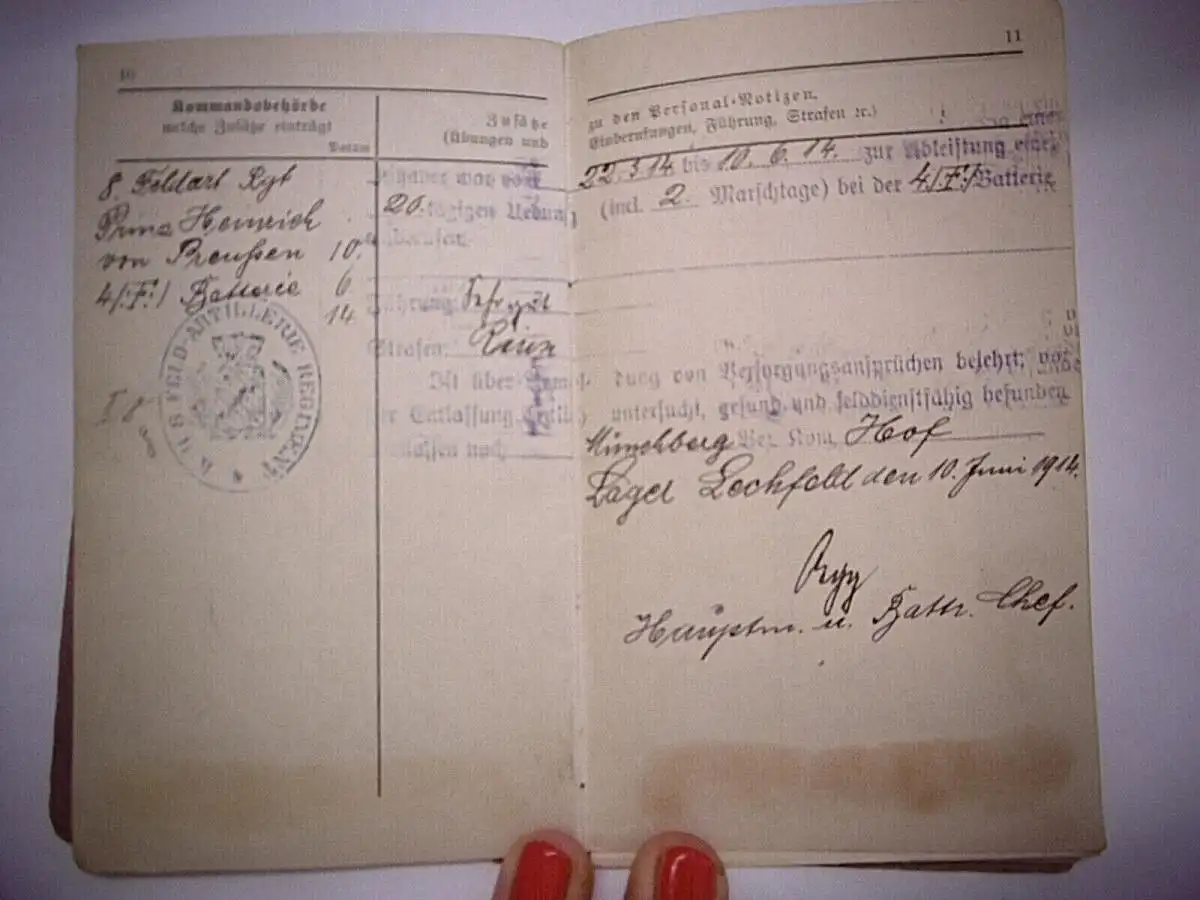 10
Kommandobehörde
welche Zusätze einträgt
Datum
8. Feldart Rgt
Prinz Heinrich
von Preußen 10.
4/:F:/ Batterie 6
14
K. B. 8 FELD-ARTILLERIE REGIMENT
Zusätze
(Übungen und
Inhaber war vom
20 tägigen Uebung
einberufen.
Führung: Sehr gut
Strafen: Keine
Ist über Anmel-
der Entlassung
entlassen nach
11
zu den Personal-Notizen.
Einberufungen, Führung, Strafen ꝛc.)
22.5.14 bis 10. 6. 14. zur Ableistung einer
(incl. 2. Marschtage) bei der 4/:F:/ Batterie
dung von Versorgungsansprüchen belehrt; vor
untersucht, gesund und felddienstfähig befunden
Münchberg Bez. Kom. Hof
Lager Lechfeld den 10. Juni 1914.
Hauptm. u. Battr. Chef.